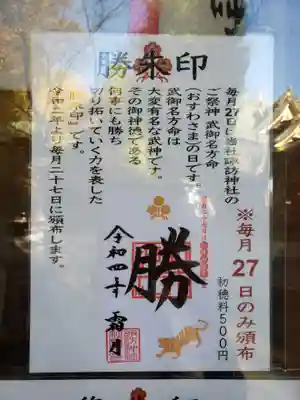 勝朱印
毎月27日は当社諏訪神社の
ご祭神 武御名方命
(おすわさま)の日です。
武御名方命は
大変有名な武神です。
その御神徳である
何事にも勝ち
切り拓いていく力を表した
「勝朱印」です。
令和三年より毎月二十七日に頒布します。
※毎月27日のみ頒布
初穂料500円
勝
令和四年 霜月